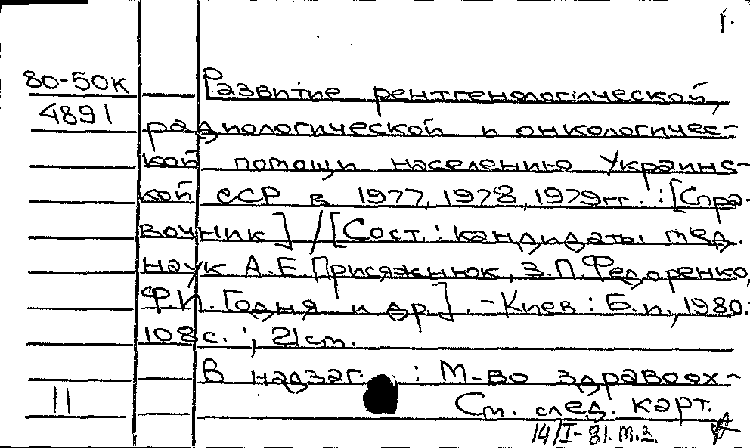 1.
80-50к Развитие рентгенологической,
4891 радиологической и онкологичес-
кой помощи населению Украинс-
кой ССР в 1977, 1978, 1979гг. : [Спра-
вочник] / [Сост.: кандидаты мед.
наук А.Е. Присяжнюк, З.П. Федоренко,
Ф.И. Годня и др.]. - Киев : Б.и., 1980.
108 с. ; 21 см.
В надзаг. : М-во здравоох-
11 См. след. карт.
14/I-81. м.з.